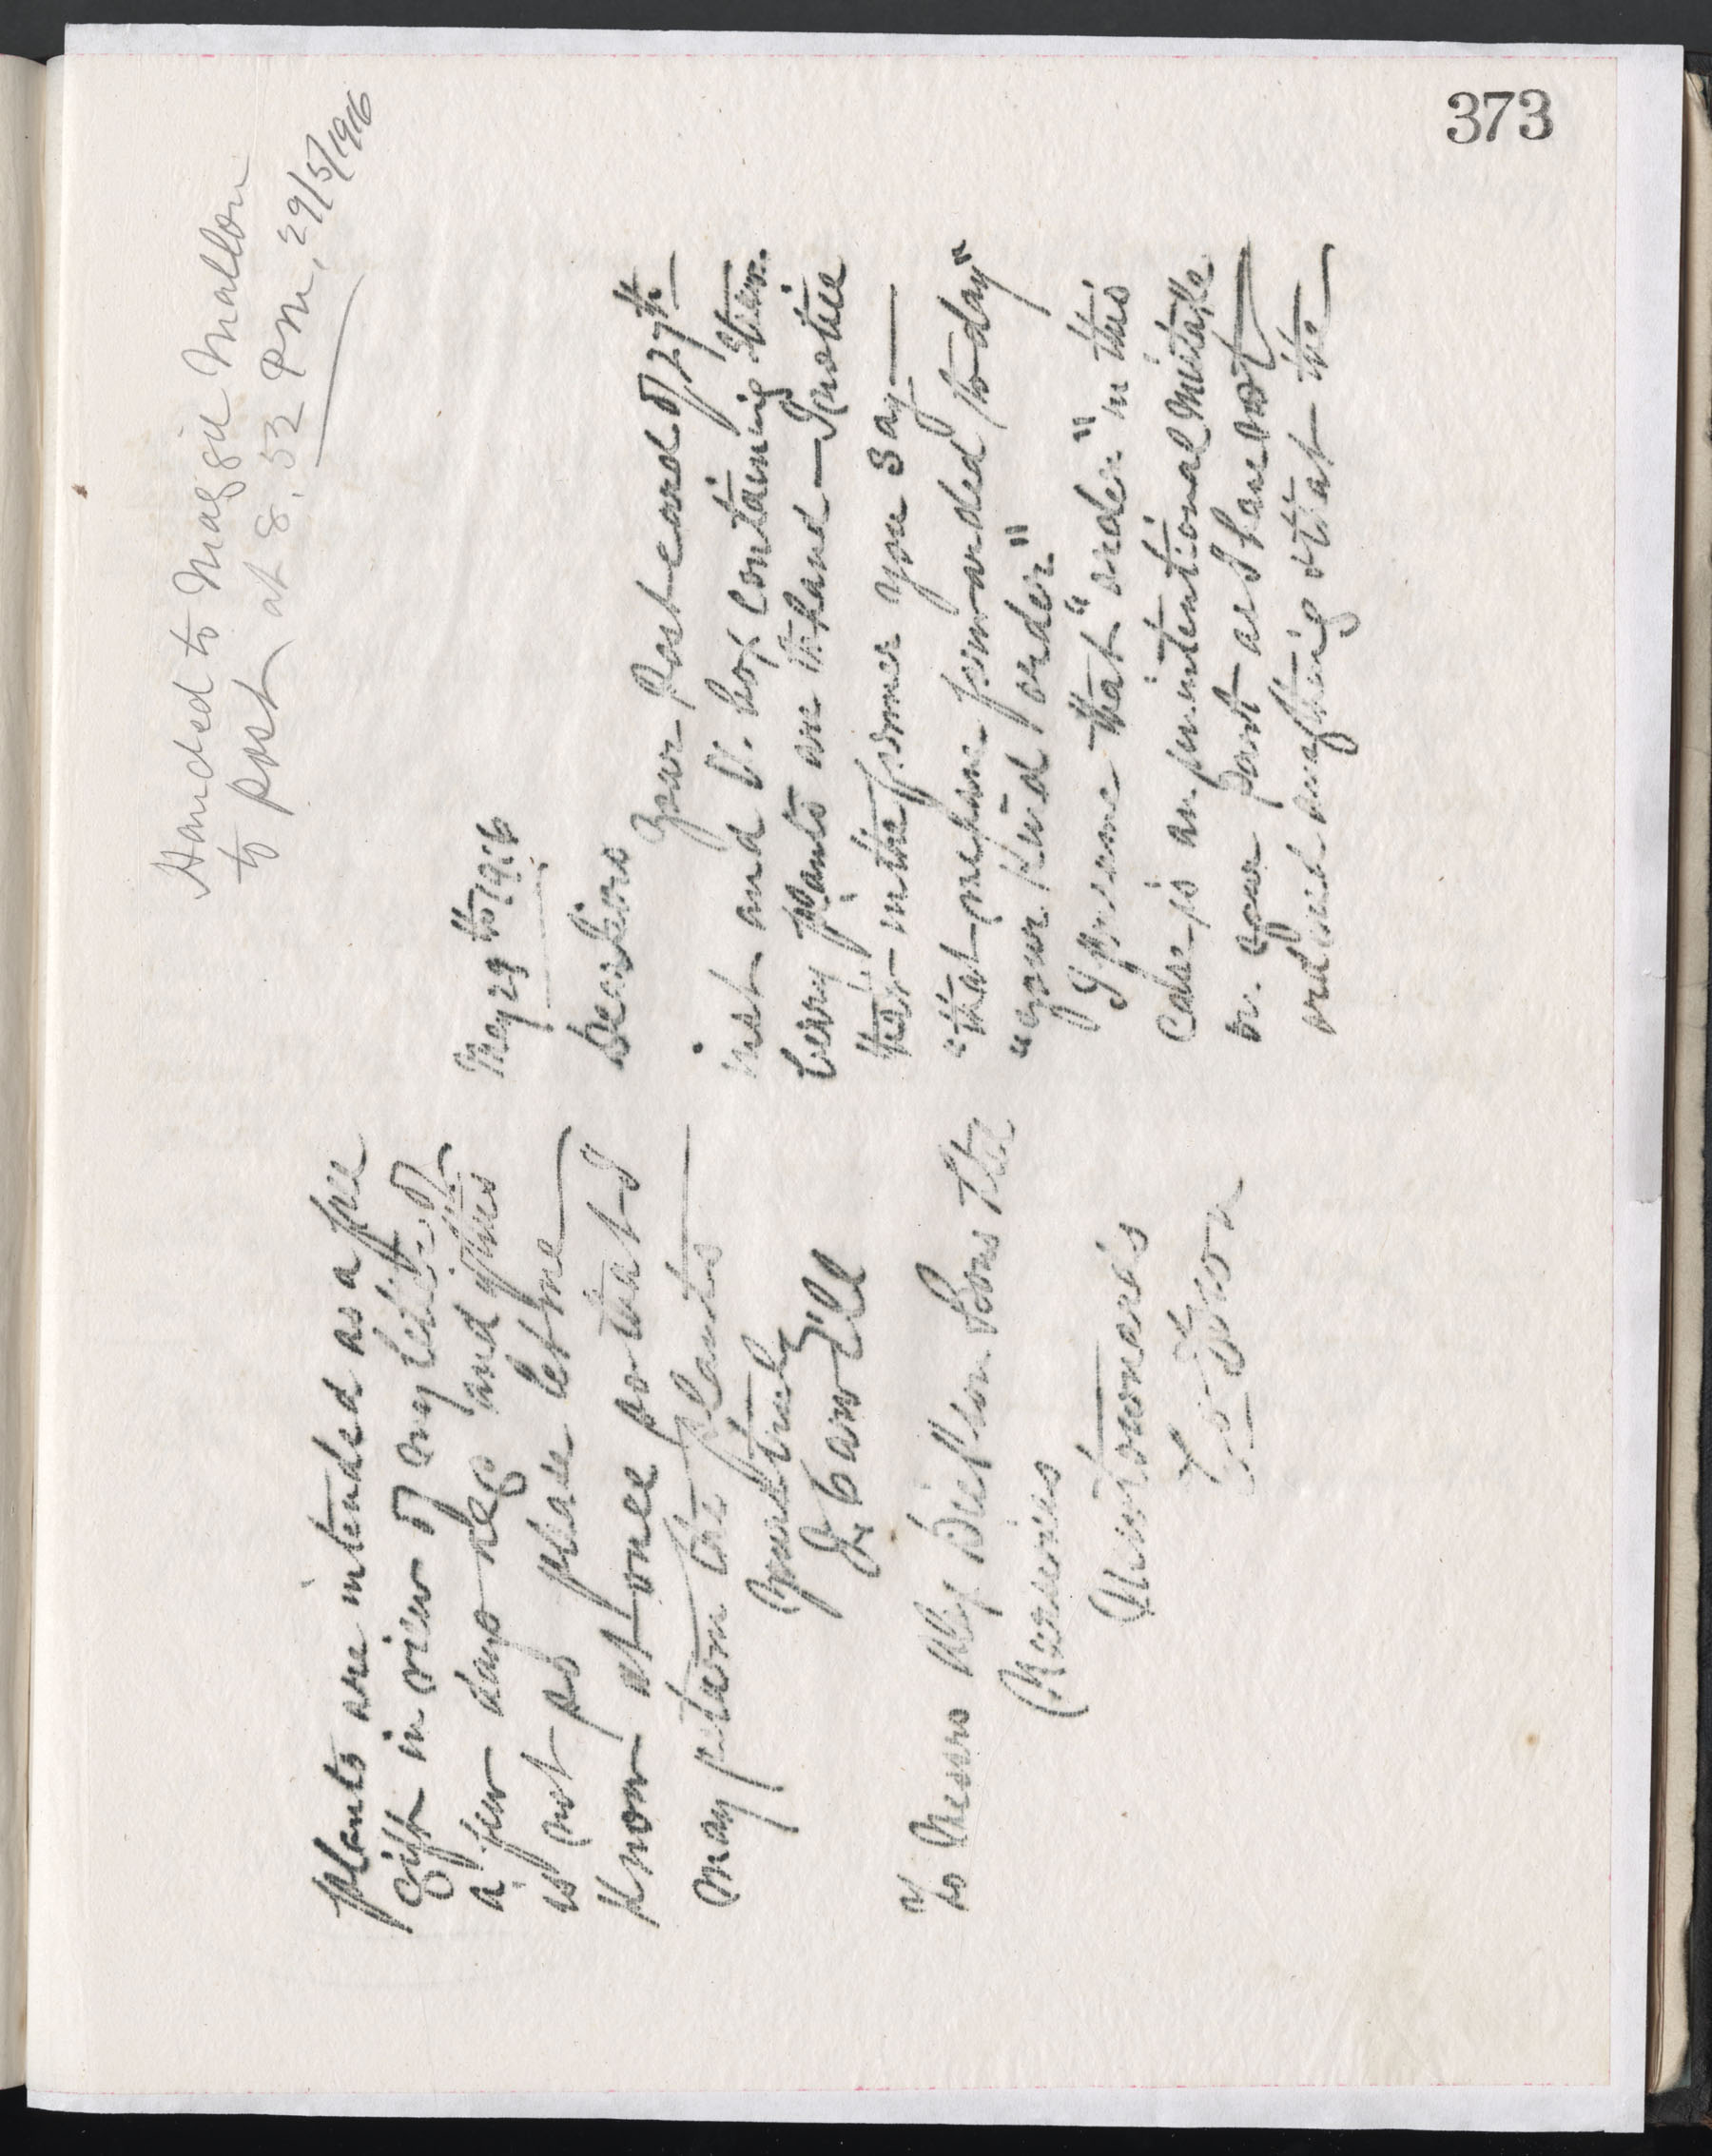 373
Handed to Maggie Mallon
to post at 8.52 PM, 29/5/1916
May 29th 1916
Dear Sirs
Your Post card of 27th
inst and V. box containing Straw
berry plants are to hand — I notice
that in the former you say —
"that we have forwarded to-day"
"your kind order"
I presume that "order" in this
case is an unintentional mistake
on your part as I have not
ordered anything & that the
plants are intended as a free
gift in view of my letter of
a few days ago and if this
is not so please let me
know at once so that I
may return the plants
Yours truly
To Messrs Alex Dickson & Sons Ltd
Nurseries
Newtownards
Co Down